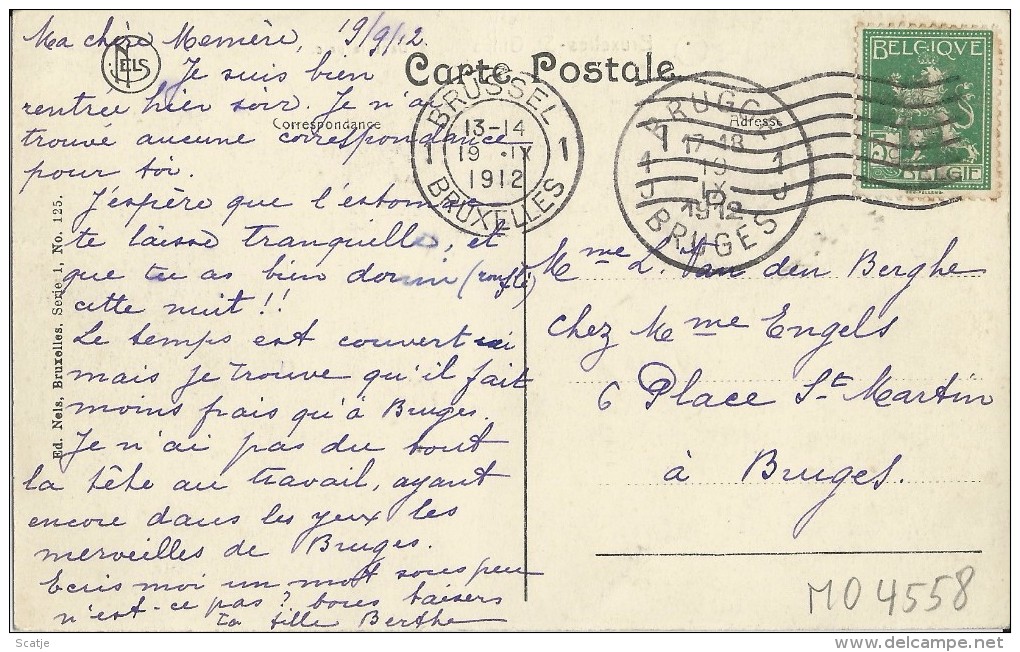 Ma chère Memère, 19/9/12
Je suis bien
rentrée hier soir. Je n'ai
trouvé aucune correspondance
pour toi.
J'espère que l'estomac
te laisse tranquille, et
que tu as bien dormi
cette nuit!!
Le temps est couvert ici
mais je trouve qu'il fait
moins frais qu'à Bruges.
Je n'ai pas du tout
la tête au travail, ayant
encore dans les yeux les
merveilles de Bruges.
Ecris moi un mot sous peu
n'est-ce pas? bons baisers
ta fille Berthe
NELS
Carte Postale
Correspondance
Adresse
Ed. Nels, Bruxelles, Serie 1, No. 125.
BRUSSEL
13-14
1 19 IX 1
1912
BRUXELLES
BRUGGE
17-18
1 19 1
IX
1912
BRUGES
BELGIQVE
5
BELGIË
Mme L. Van den Berghe
chez Mme Engels
6 Place St Martin
à Bruges.
MO4558
Scatje
delcampe.net